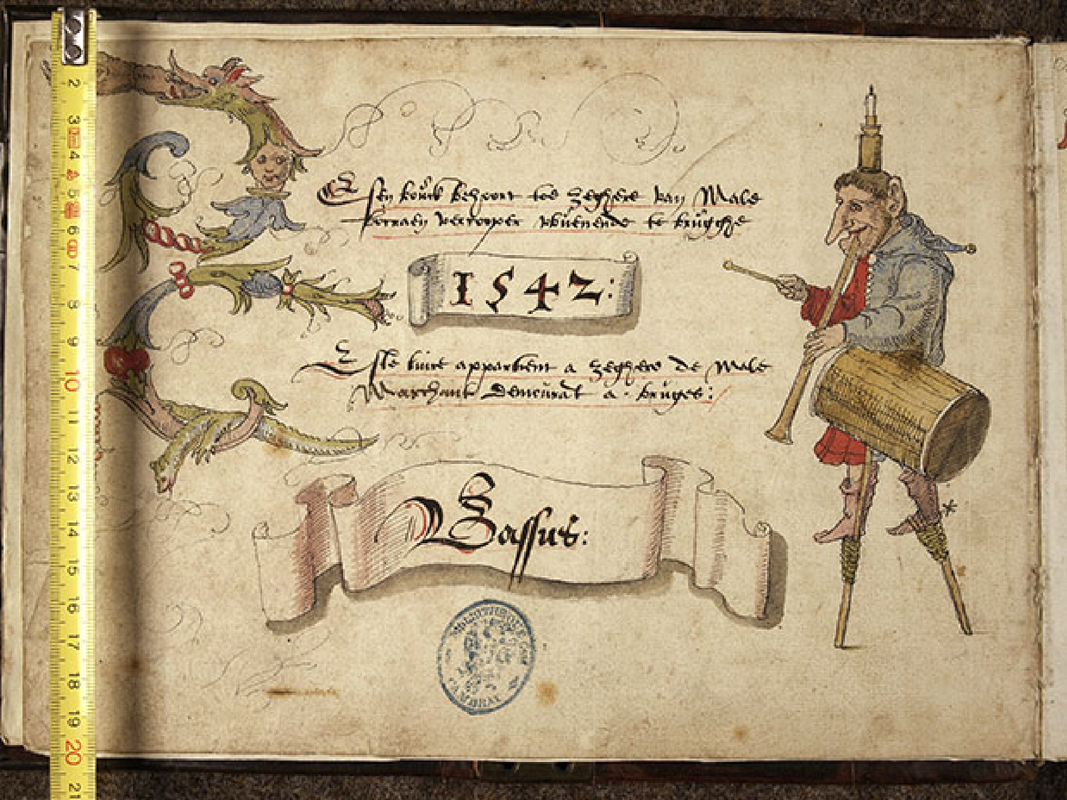 Esen bouck behoort toe zeghere van Male
vercooper wuenende te brugghe
1542:
Este livre appartient a zeghere de Male
Marchant demeurāt a bruges:
Bassus:
BIBLIOTHEQUE
CAMBRAI
2
3
4
5
6
7
8
9
10
11
12
13
14
15
16
17
18
19
20
21